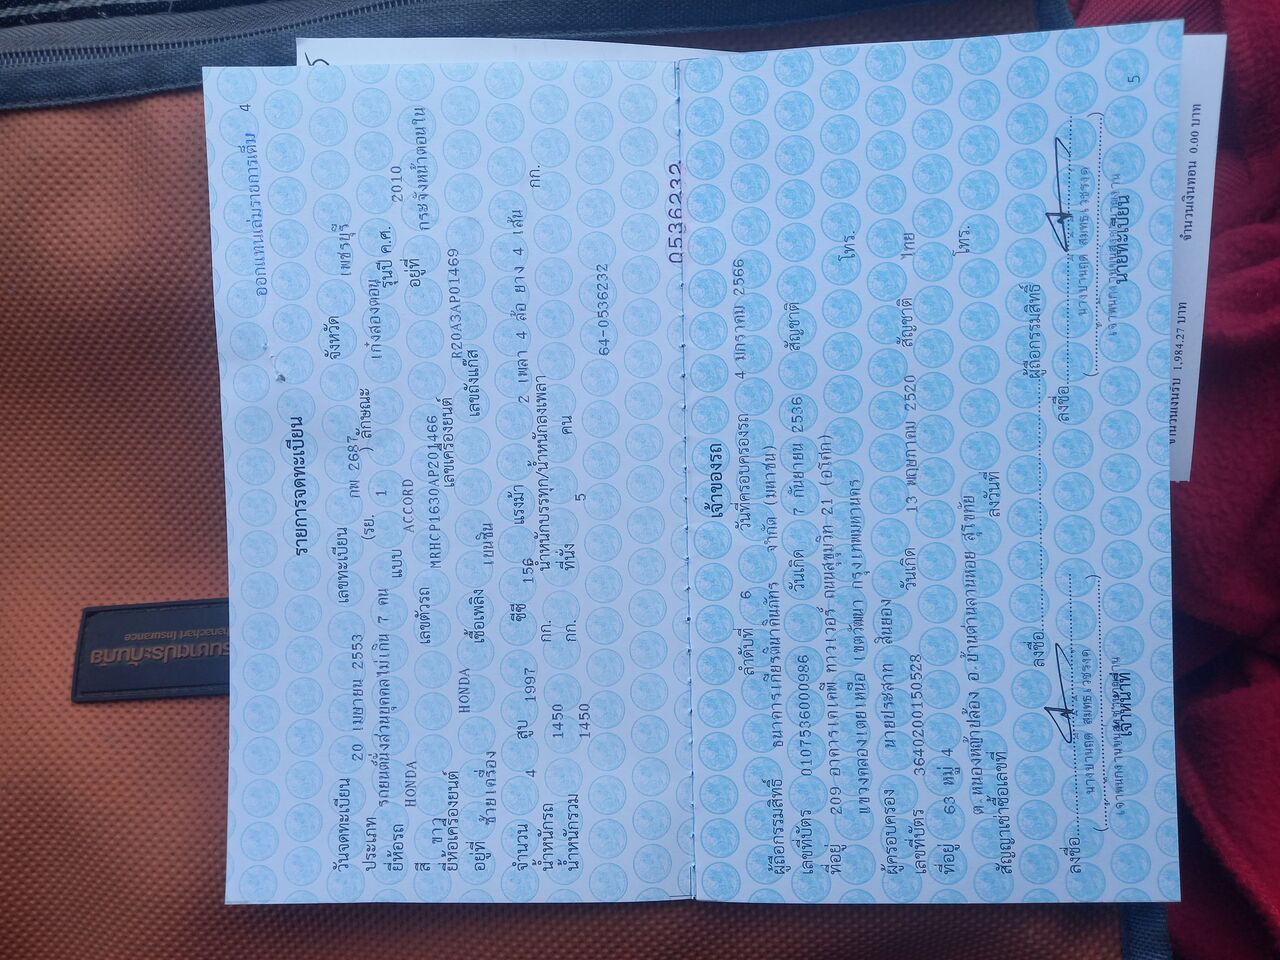 4
ออกแทนเล่มรายการเดิม
รายการจดทะเบียน
วันจดทะเบียน 20 เมษายน 2553 เลขทะเบียน กพ 2687 จังหวัด เพชรบุรี
ประเภท รถยนต์นั่งส่วนบุคคลไม่เกิน 7 คน (รย. 1 ) ลักษณะ เก๋งสองตอน
ยี่ห้อรถ HONDA แบบ ACCORD รุ่นปี ค.ศ. 2010
สี ขาว เลขตัวรถ MRHCP1630AP201466 อยู่ที่ กระจังหน้าตอนใน
ยี่ห้อเครื่องยนต์ HONDA เลขเครื่องยนต์ R20A3AP01469
อยู่ที่ ซ้ายเครื่อง เชื้อเพลิง เบนซิน เลขถังแก๊ส
จำนวน 4 สูบ 1997 ซีซี 156 แรงม้า 2 เพลา 4 ล้อ ยาง 4 เส้น
น้ำหนักรถ 1450 กก. น้ำหนักบรรทุก/น้ำหนักลงเพลา กก.
น้ำหนักรวม 1450 กก. ที่นั่ง 5 คน
64-0536232
0536232
เจ้าของรถ
ลำดับที่ 6 วันที่ครอบครองรถ 4 มกราคม 2566
ผู้ถือกรรมสิทธิ์ ธนาคารเกียรตินาคินภัทร จำกัด (มหาชน)
เลขที่บัตร 0107536000986 วันเกิด 7 กันยายน 2536 สัญชาติ
ที่อยู่ 209 อาคารเคเคพี ทาวเวอร์ ถนนสุขุมวิท 21 (อโศก)
แขวงคลองเตยเหนือ เขตวัฒนา กรุงเทพมหานคร โทร.
ผู้ครอบครอง นายประสาท สินยอง
เลขที่บัตร 3640200150528 วันเกิด 13 พฤษภาคม 2520 สัญชาติ ไทย
ที่อยู่ 63 หมู่ 4
ต.หนองหญ้าปล้อง อ.บ้านด่านลานหอย สุโขทัย โทร.
สัญญาเช่าซื้อเลขที่ ลงวันที่
ลงชื่อ ผู้ถือกรรมสิทธิ์
ลงชื่อ ลงชื่อ
เจ้าหน้าที่ นายทะเบียน
5
จำนวนเงินรับ 1,984.27 บาท จำนวนเงินทอน 0.00 บาท
ธนชาตประกันภัย
Thanachart Insurance